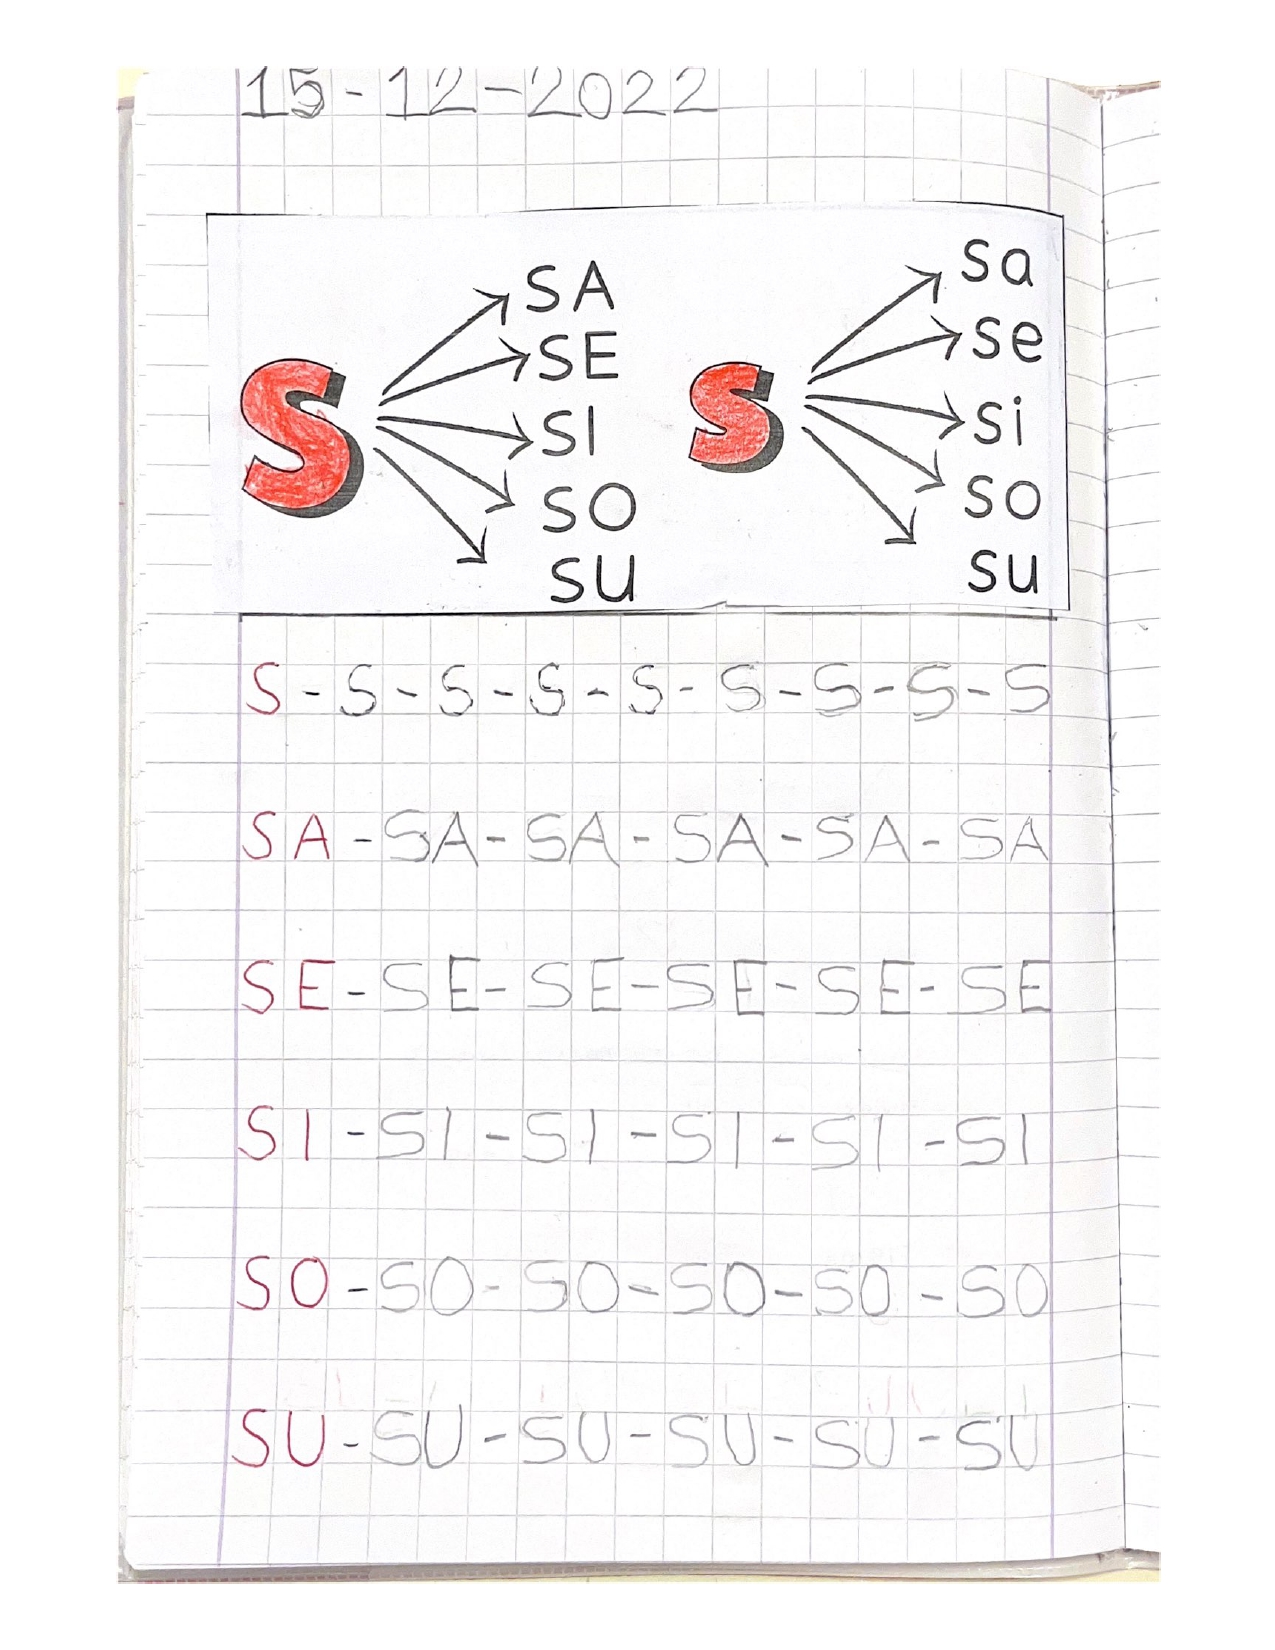 15-12-2022
S SA
SE
SI
SO
SU
s sa
se
si
so
su
S-S-S-S-S-S-S-S-S
SA-SA-SA-SA-SA-SA
SE-SE-SE-SE-SE-SE
SI-SI-SI-SI-SI-SI
SO-SO-SO-SO-SO-SO
SU-SU-SU-SU-SU-SU